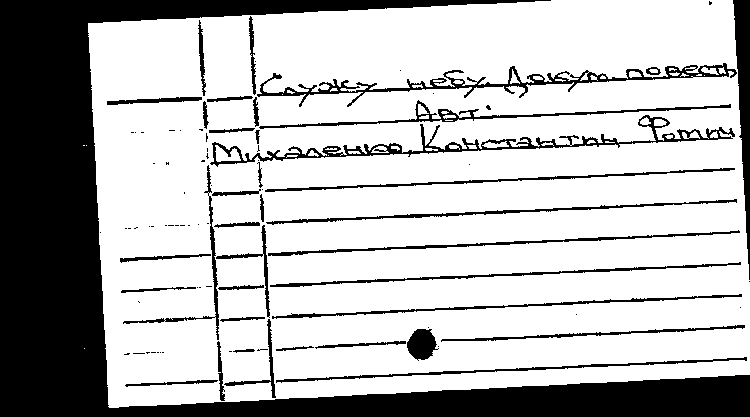 Служу небу. Докум. повесть
Авт.:
Михаленко, Константин Фомич